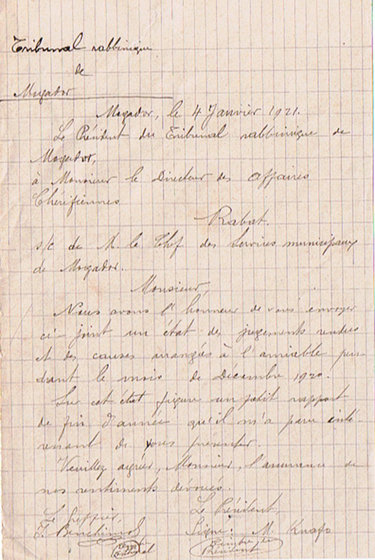 Tribunal rabbinique
de
Mogador
Mogador, le 4 Janvier 1921.
Le Président du Tribunal rabbinique de
Mogador,
à Monsieur le Directeur des Affaires
Chérifiennes
Rabat.
s/c de M. le Chef des Services municipaux
de Mogador.
Monsieur,
Nous avons l'honneur de vous envoyer
ci-joint un état des jugements rendus
et des causes arrangés à l'amiable pen
dant le mois de Décembre 1920.
Sur cet état figure un petit rapport
de fin d'année qu'il m'a paru inté-
ressant de vous présenter.
Veuillez agréer, Monsieur, l'assurance de
nos sentiments dévoués.
Le Greffier, Le Président,
Signé: M. Knafo